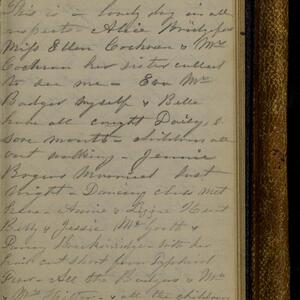 This is a lovely day in all
respects - Allie Bridgfor
Miss Ellen Cochran & Mrs
Cochran her sister called
to see me - Eva Mc
Badger myself & Belle
have all caught Daisy's
sore mouth - children all
out walking - Jennie
Bogus Married last
night - Dancing class met
here - Annie & Lizzie Kent
Betty & Jessie & 
Penny Breckinridge with her
hair cut short from Typhoid
Fever - All the Badgers & Mrs
& all the children